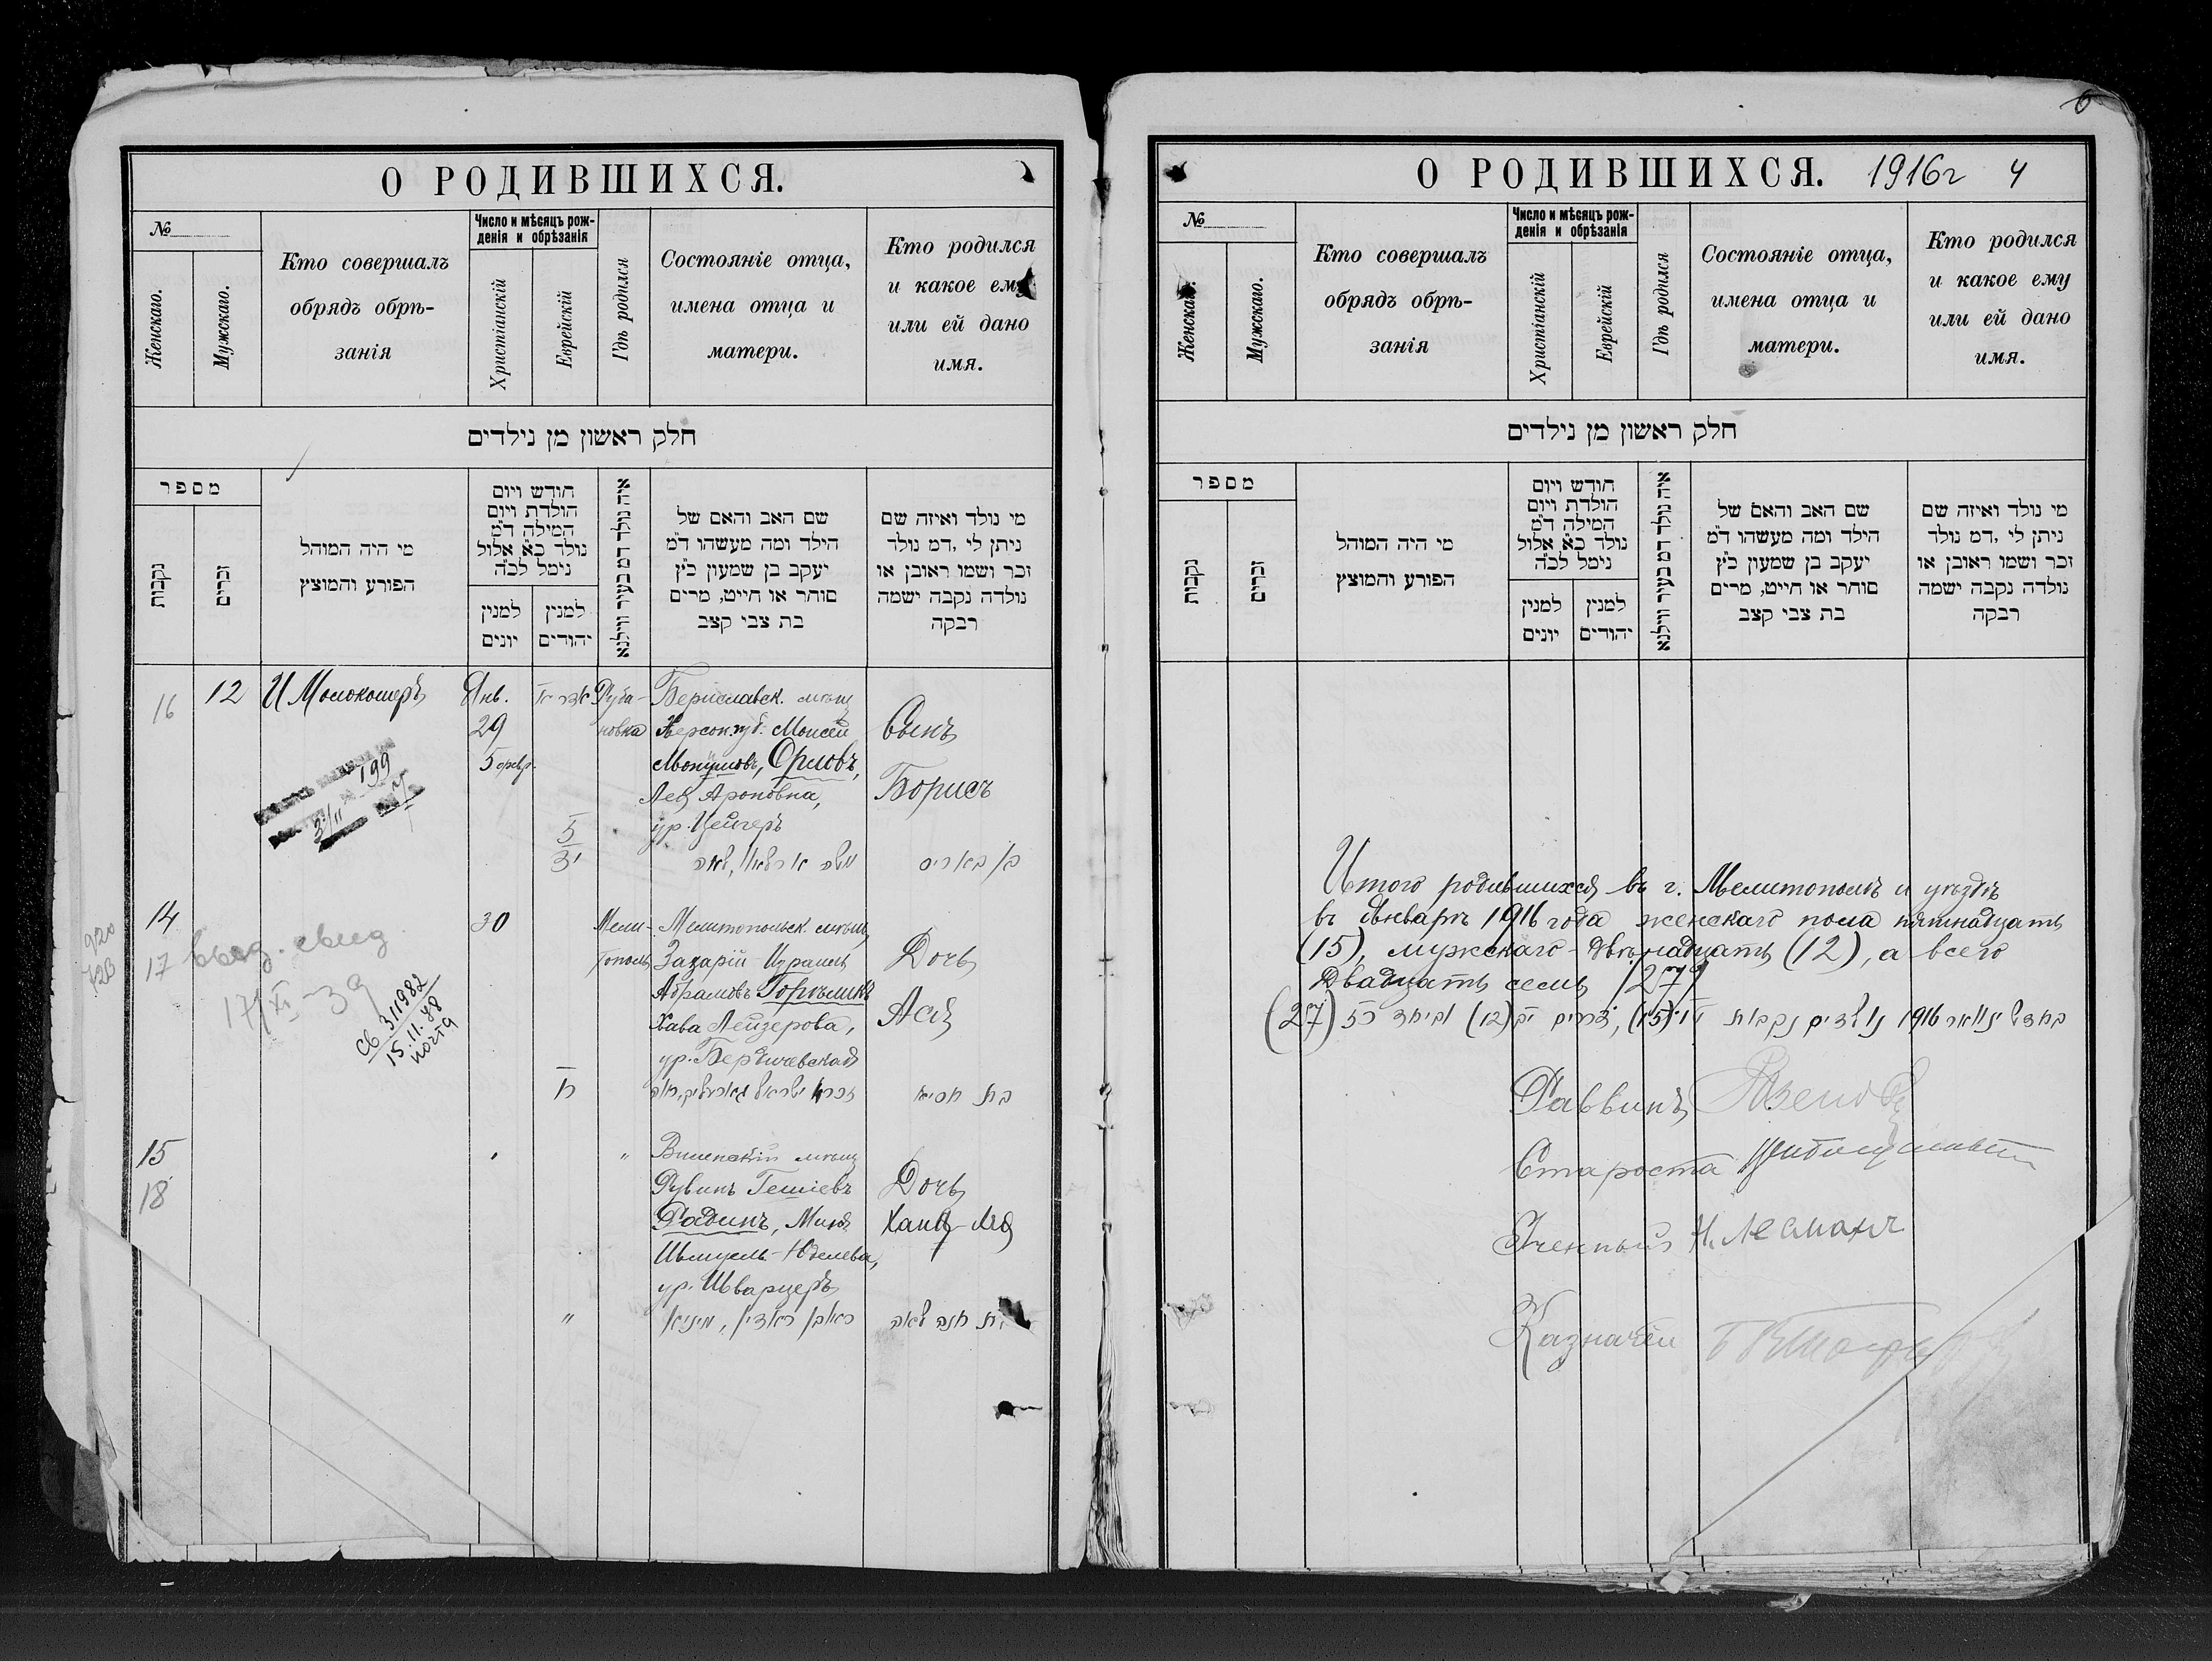 О РОДИВШИХСЯ.
№
Женскаго.
Мужскаго.
Кто совершалъ
обрядъ обрѣ-
занія
Число и мѣсяцъ рож-
денія и обрѣзанія
Христіанскій
Еврейскій
Гдѣ родился
Состояніе отца,
имена отца и
матери.
Кто родился
и какое ему
или ей дано
имя.
חלק ראשון מן נילדים
מספר
נקבות
זכרים
מי היה המוהל
הפורע והמוצץ
חודש ויום
הולדת ויום
המילה ד״מ
נולד כ״א אלול
נימל לכ״ה
למנין
יונים
למנין
יהודים
איה נולד דמ בעיר ווילנא
שם האב והאם של
הילד ומה מעשהו ד״מ
יעקב בן שמעון כ״ץ
סוחר או חייט, מרים
בת צבי קצב
מי נולד ואיזה שם
ניתן לי ,דמ נולד
זכר ושמו ראובן או
נולדה נקבה ישמה
רבקה
16
12
Янв.
29
5 февр.
Руба-
новка
Бериславск. мѣщ
Херсон. губ. Моисей
Орловъ,
Лея Ароновна,
ур. Цейгеръ
Сынъ
Борисъ
199
3/II
14
17
выд. свид
17/XI-39
св 311982
15.11.48
почта
30
Мели-
тополь
Мелитопольск. мѣщ,
Захарій Израиль
Абрамовъ Горѣликъ
Хава Лейзерова,
ур. Бердичевская
Дочь
Ася
בת אסיא
15
18
"
Виленскій мѣщ
Рувинъ Гешіевъ
Радинъ, Миня
Шмуель-Юделева,
ур. Шварцеръ
ראובן ראדין, מיניא
Дочь
Хана-Лея
"
בת חנה לאה
О РОДИВШИХСЯ. 1916г 4
6
№
Женскаго.
Мужскаго.
Кто совершалъ
обрядъ обрѣ-
занія
Число и мѣсяцъ рож-
денія и обрѣзанія
Христіанскій
Еврейскій
Гдѣ родился
Состояніе отца,
имена отца и
матери.
Кто родился
и какое ему
или ей дано
имя.
חלק ראשון מן נילדים
מספר
נקבות
זכרים
מי היה המוהל
הפורע והמוצץ
חודש ויום
הולדת ויום
המילה ד״מ
נולד כ״א אלול
נימל לכ״ה
למנין
יונים
למנין
יהודים
איה נולד דמ בעיר ווילנא
שם האב והאם של
הילד ומה מעשהו ד״מ
יעקב בן שמעון כ״ץ
סוחר או חייט, מרים
בת צבי קצב
מי נולד ואיזה שם
ניתן לי ,דמ נולד
זכר ושמו ראובן או
נולדה נקבה ישמה
רבקה
Итого родившихся въ г. Мелитополѣ и уѣздѣ
въ Январѣ 1916 года женскаго пола пятнадцать
(15), мужскаго - двѣнадцать (12), а всего
двадцать семь (27)
בחדש ינואר 1916 נולדים נקבות (15), זכרים יב (12) וביחד כז (27)
Раввинъ
Староста
Ученый Н. Леманъ
Казначей